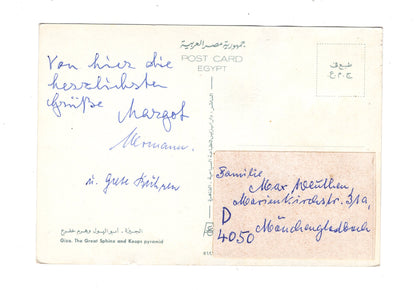 جمهورية مصر العربية
POST CARD
EGYPT
طبع فى
ج.م.ع
Von hier die
herzlichsten
Grüße
Margot
Hermann
u. Grete
Familie
Max Weuthen,
Marienkirchstr. 31a,
D
4050 Mönchengladbach
الجيزة - أبو الهول وهرم خفرع
Giza, The Great Sphinx and Keops pyramid